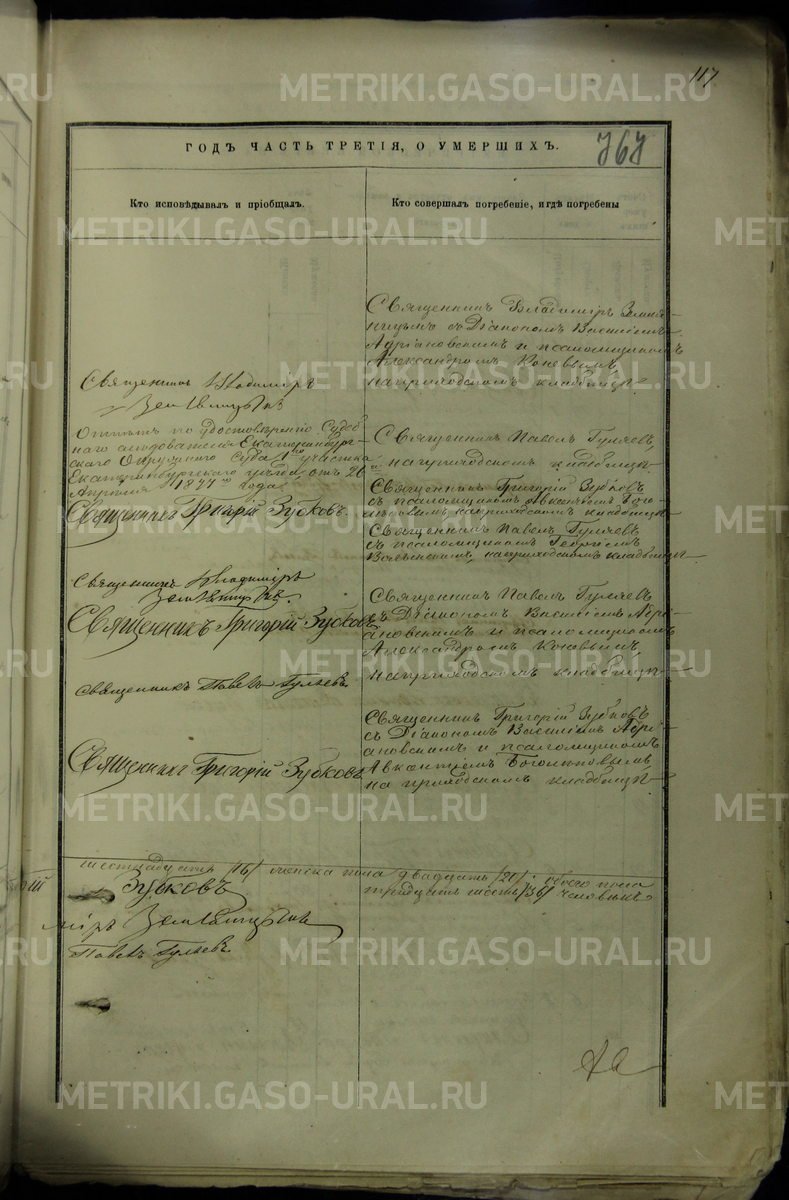 117
ГОДЪ ЧАСТЬ ТРЕТІЯ, О УМЕРШИХЪ.
767
Кто исповѣдывалъ и пріобщалъ.
Кто совершалъ погребеніе, и гдѣ погребены
Священникъ Владиміръ
Священникъ Владиміръ
съ Діакономъ Василіемъ
Адріановскимъ и псаломщикомъ
Александромъ Коневымъ,
на приходскомъ кладбищѣ
Отпѣтъ по удостовѣренію Судеб
наго слѣдователя Екатеринбург-
скаго Окружнаго Суда 1го участка
Екатеринбургскаго уѣзда, отъ 26
Апрѣля 1877го года
Священникъ Григорій Зубковъ.
Священникъ Владиміръ
Священникъ Григорій Зубковъ
Священникъ Павелъ Гуляевъ
Священникъ Григорій Зубковъ
Священникъ Павелъ Гуляевъ,
на приходскомъ кладбищѣ
Священникъ Григорій Зубковъ
съ псаломщикомъ
на приходскомъ кладбищѣ
Священникъ Павелъ Гуляевъ
съ псаломщикомъ Георгіемъ
на приходскомъ кладбищѣ
Священникъ Павелъ Гуляевъ
съ Діакономъ Василіемъ Адрі-
ановскимъ и псаломщикомъ
Александромъ Коневымъ,
на приходскомъ кладбищѣ
Священникъ Григорій Зубковъ
съ Діакономъ Василіемъ Адрі-
ановскимъ и псаломщикомъ
Боголюбовымъ,
на приходскомъ кладбищѣ
шестнадцать /16/ женска пола двадцать /20/ обоего пола
тридцать шесть /36/ человѣкъ
Зубковъ
міръ
Павелъ Гуляевъ.
METRIKI.GASO-URAL.RU